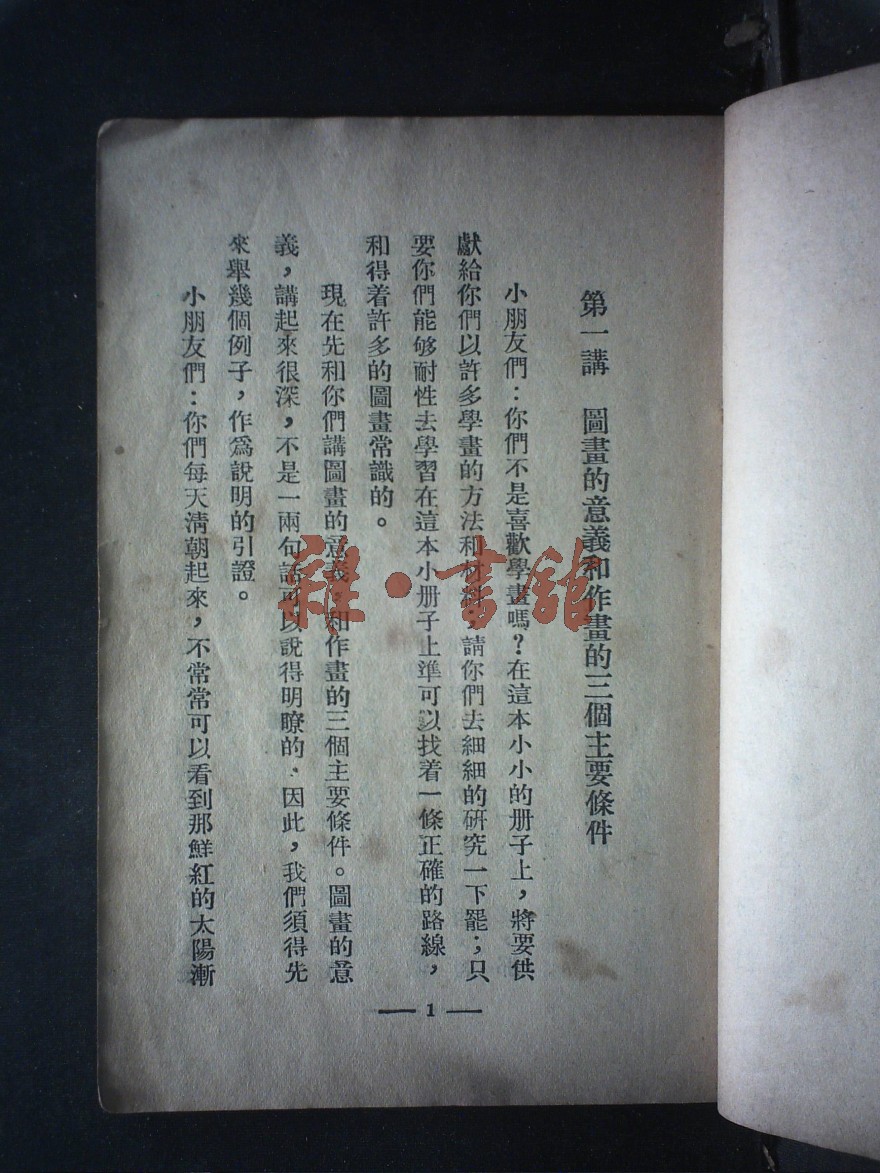 第一講　圖畫的意義和作畫的三個主要條件
小朋友們：你們不是喜歡學畫嗎？在這本小小的册子上，將要供
獻給你們以許多學畫的方法和材料，請你們去細細的研究一下罷；只
要你們能够耐性去學習在這本小册子上準可以找着一條正確的路線，
和得着許多的圖畫常識的。
現在先和你們講圖畫的意義，和作畫的三個主要條件。圖畫的意
義，講起來很深，不是一兩句話可以說得明瞭的．因此，我們須得先
來舉幾個例子，作爲說明的引證。
小朋友們：你們每天清朝起來，不常常可以看到那鮮紅的太陽漸
— 1 —
雜·書館